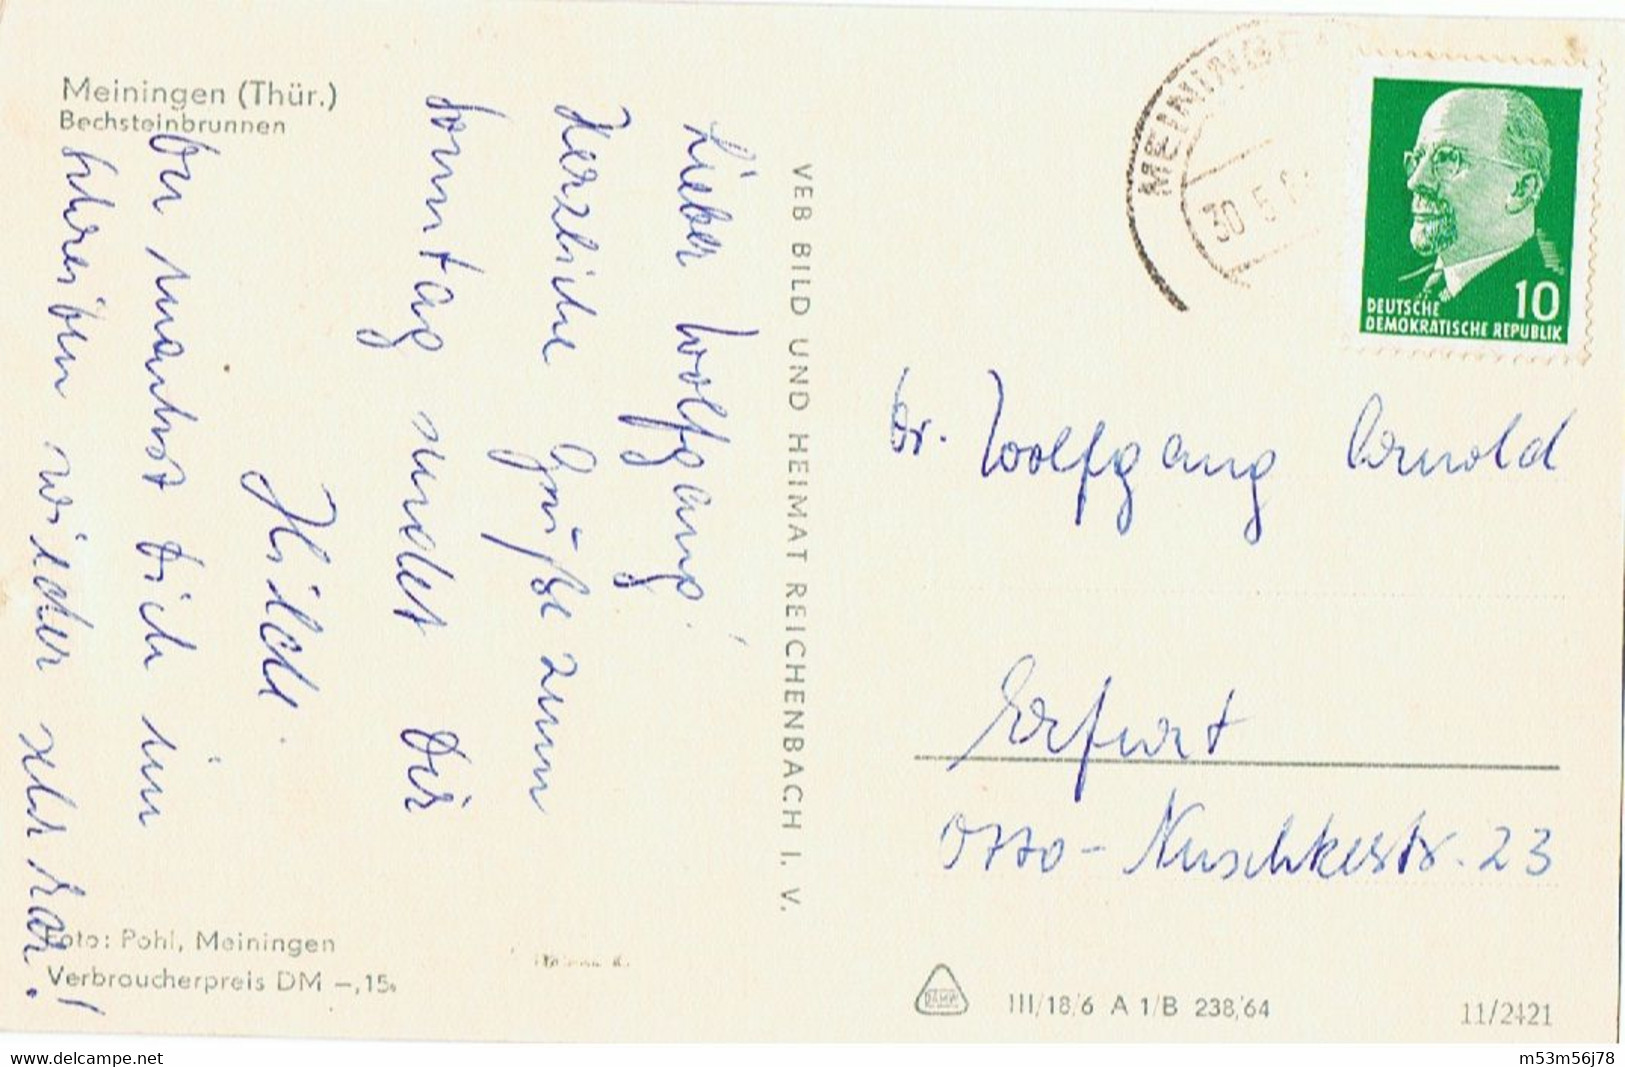 Meiningen (Thür.)
Bechsteinbrunnen
Lieber Wolfgang!
Herzliche Grüße zum
Sonntag sendet Dir
Hilde.
Du machst Dich im
Schreiben wieder sehr rar!
Foto: Pohl, Meiningen
Verbraucherpreis DM –,15
VEB BILD UND HEIMAT REICHENBACH I. V.
MEININGE
30.5.6
DEUTSCHE
DEMOKRATISCHE REPUBLIK
10
Dr. Wolfgang Arnold
Erfurt
Otto-Nuschkestr. 23
III/18/6 A 1/B 238/64
11/2421
m53m56j78